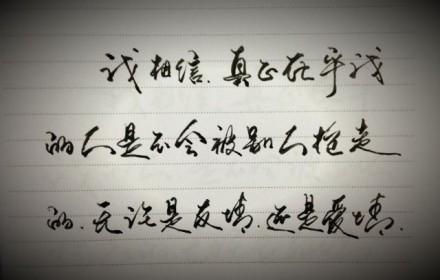 我相信.真正在乎我
的人是不会被别人抢走
的.无论是友情.还是爱情.